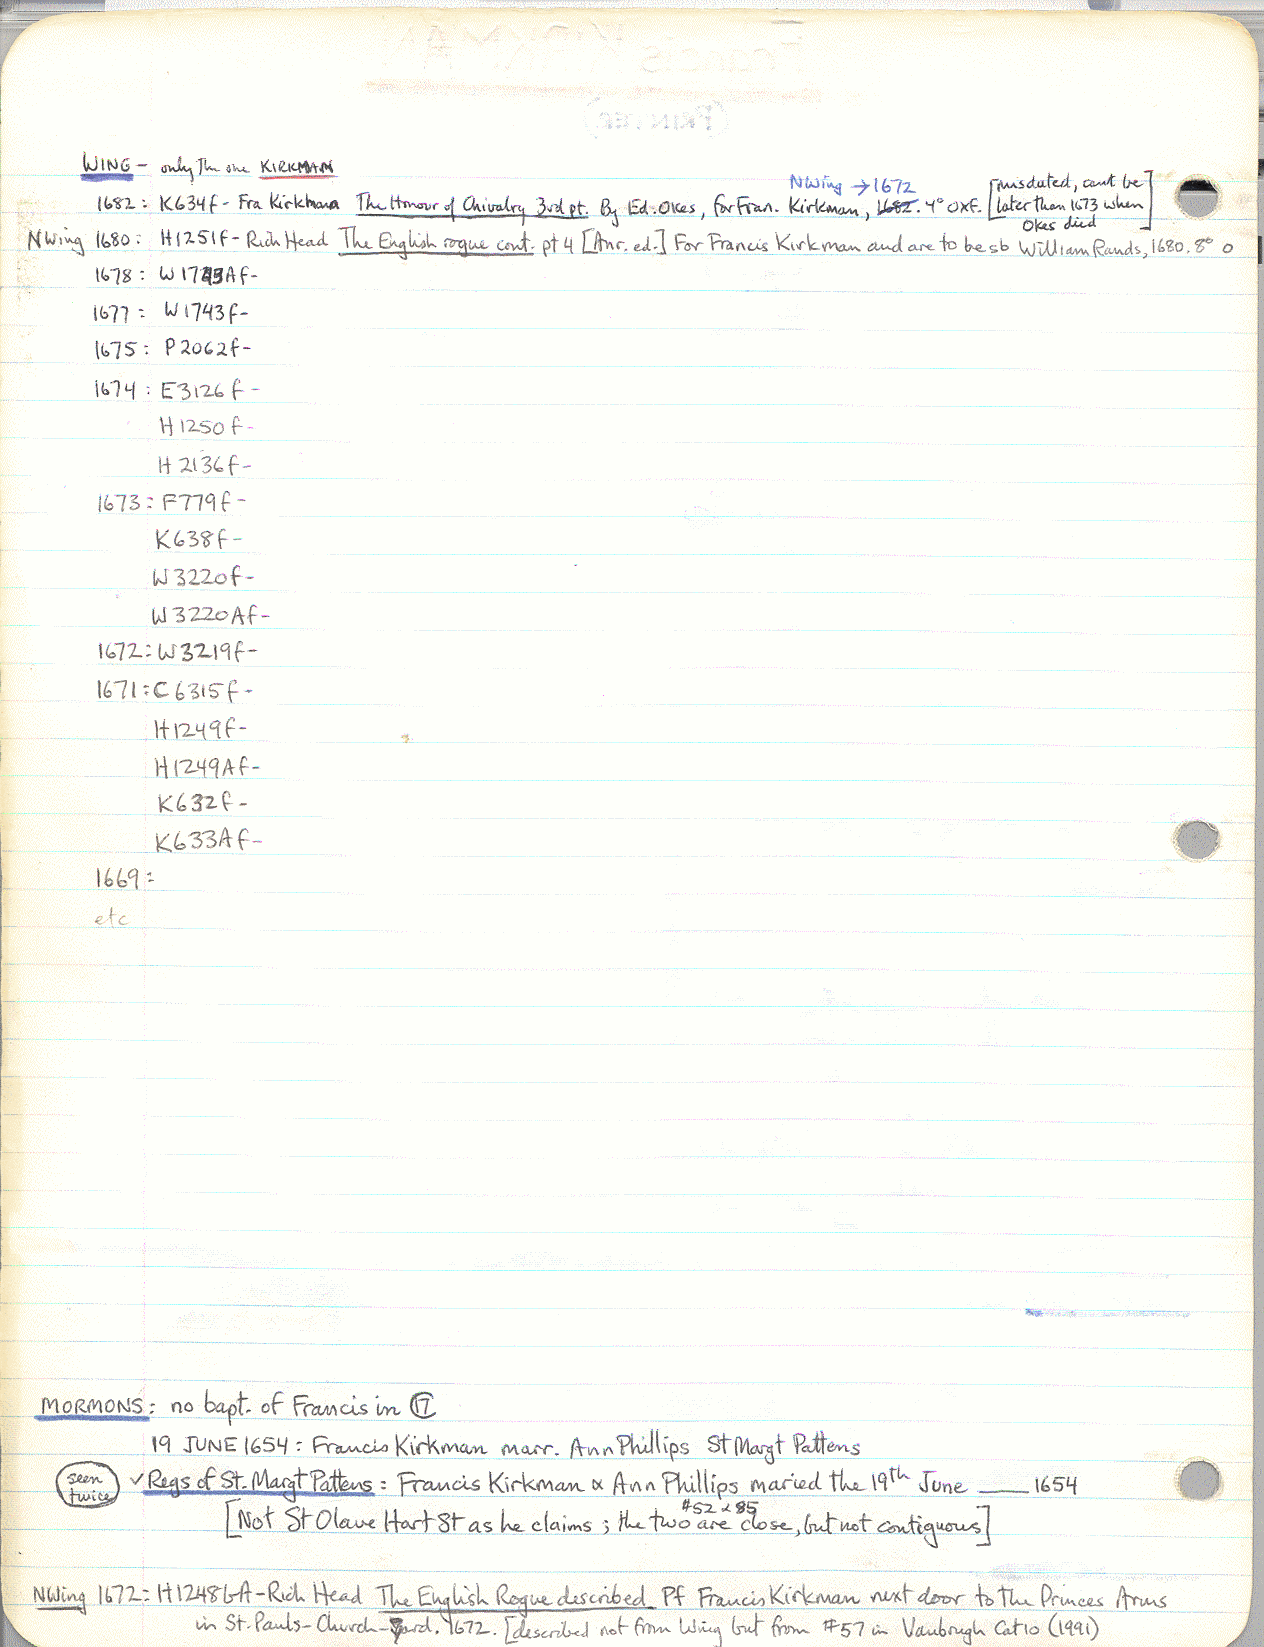 WING - only the one KIRKMAN
NWing → 1672
[misdated, cant be
1682: K634f - Fra Kirkman The Honour of Chivalry 3rd pt. By Ed. Okes, for Fran. Kirkman, 1682. 4° OXF. later than 1673 when
Okes died]
NWing 1680: H1251f - Rich Head The English rogue cont. pt 4 [Anr. ed.] For Francis Kirkman and are to be sb William Rands, 1680. 8° O
1678: W1743Af -
1677: W1743f -
1675: P2062f -
1674: E3126f -
H1250f -
H2136f -
1673: F779f -
K638f -
W3220f -
W3220Af -
1672: W3219f -
1671: C6315f -
H1249f -
H1249Af -
K632f -
K633Af -
1669:
etc
MORMONS: no bapt. of Francis in 17
19 JUNE 1654: Francis Kirkman marr. Ann Phillips St Margt Pattens
seen twice ✓ Regs of St. Margt Pattens: Francis Kirkman & Ann Phillips maried the 19th June ___ 1654
#52 & 85
[Not St Olave Hart St as he claims; the two are close, but not contiguous]
NWing 1672: H1248bA - Rich Head The English Rogue described Pf Francis Kirkman next door to the Princes Arms
in St. Pauls-Church-Yard. 1672. [described not from Wing but from #57 in Vanbrugh Cat 10 (1991)